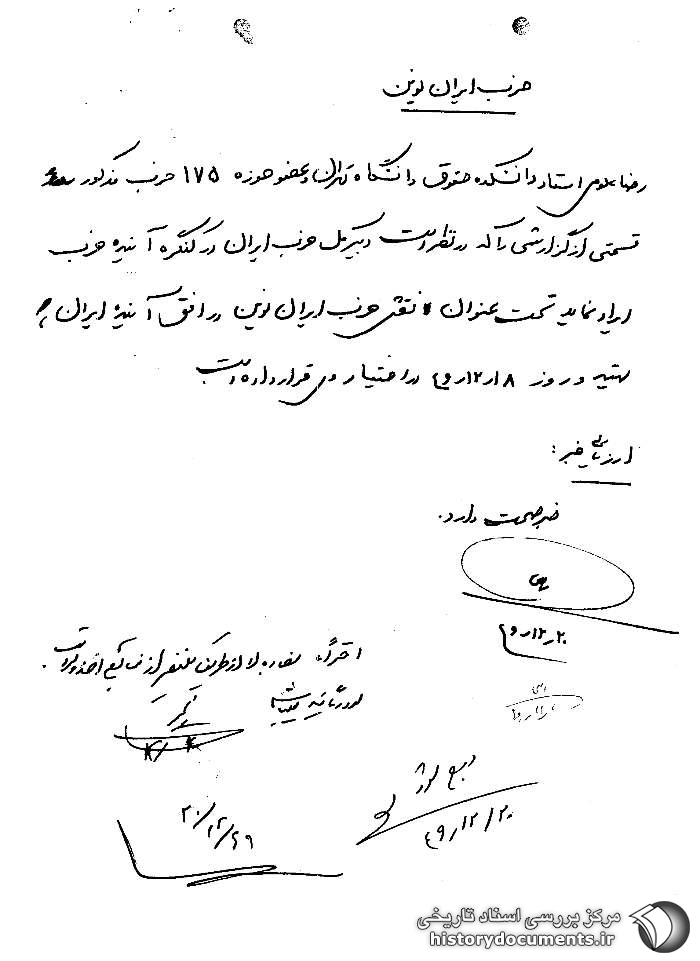 حزب ایران نوین
رضا علومی استاد دانشکده حقوق دانشگاه تهران و عضو حوزه ۱۷۵ حزب مذکور
قسمتی از گزارشی را که در نظر است دبیرکل حزب ایران در کنگره آینده حزب
ایراد نماید تحت عنوان « نقش حزب ایران نوین در افق آینده ایران »
تهیه و روز ۱۸ر۱۲ر۴۹ در اختیار وی قرار داده است
ارزیابی خبر :
خبر صحت دارد.
۲۰ر۱۲ر۴۹
احتراماً مفاد بالا از طریق تلفن از منابع اخذ
۲۰/۱۲/۴۹
۲۰/۱۲ر۴۹
مرکز بررسی اسناد تاریخی
historydocuments.ir